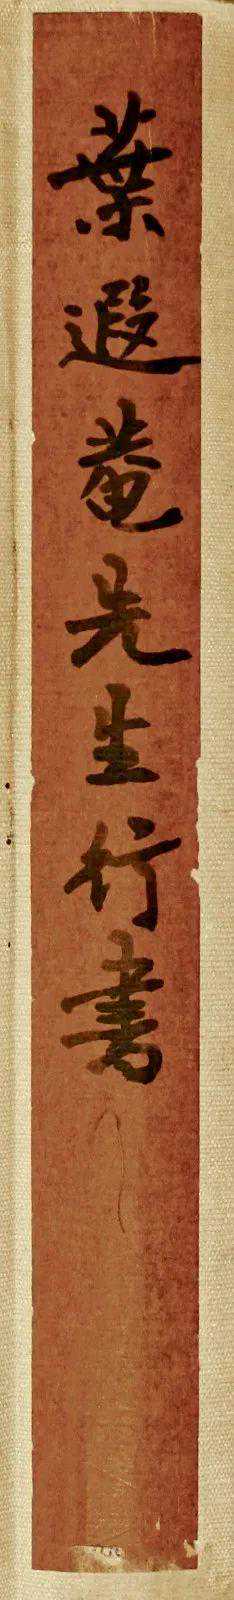 葉遐菴先生行書